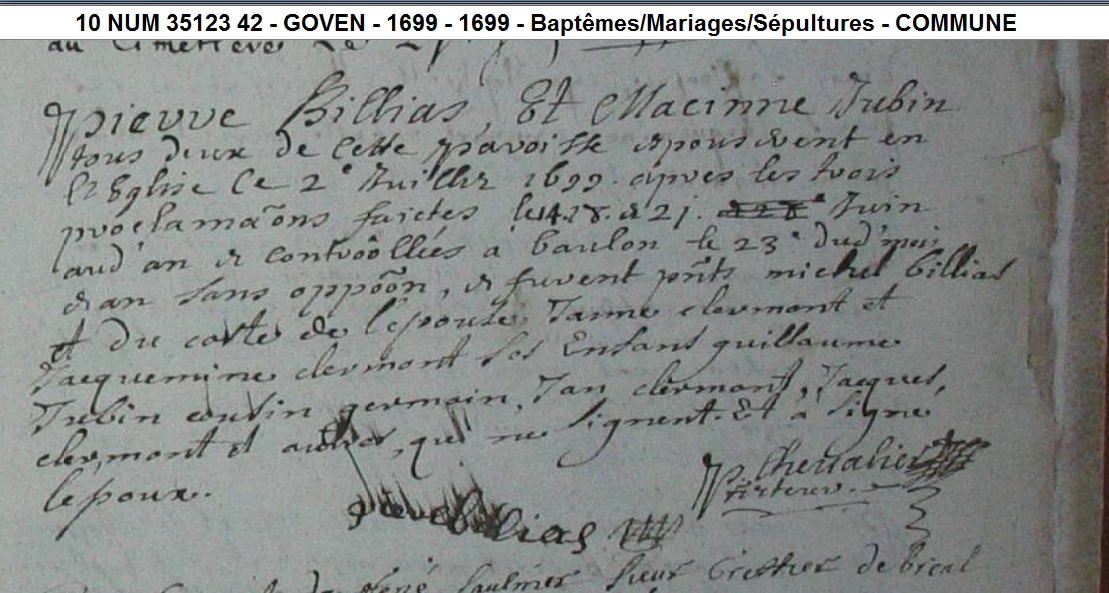 10 NUM 35123 42 - GOVEN - 1699 - 1699 - Baptêmes/Mariages/Sépultures - COMMUNE
au Cimetiere Le 27
pierre Billias, Et Macinne Jubin
tous deux de Cette paroisse epouserent en
l'Eglise Le 2e Juillez 1699. apres les trois
proclamaõns faictes le 14. 18. & 21. Juin
aud' an & controollées a baulon le 23e dud' moi
& an sans oppoõn, & furent pñts michel billias
et du costé de l'epouse Janne clermont et
Jacquemine clermont ses Enfans guillaume
Jubin cousin germain, Jan clermont, Jacques
clermont et autres, qui ne signent. Et a signé
l'epoux.
p. Chevalier
pierre billias
de René Saulnier Sieur Greffier de breal